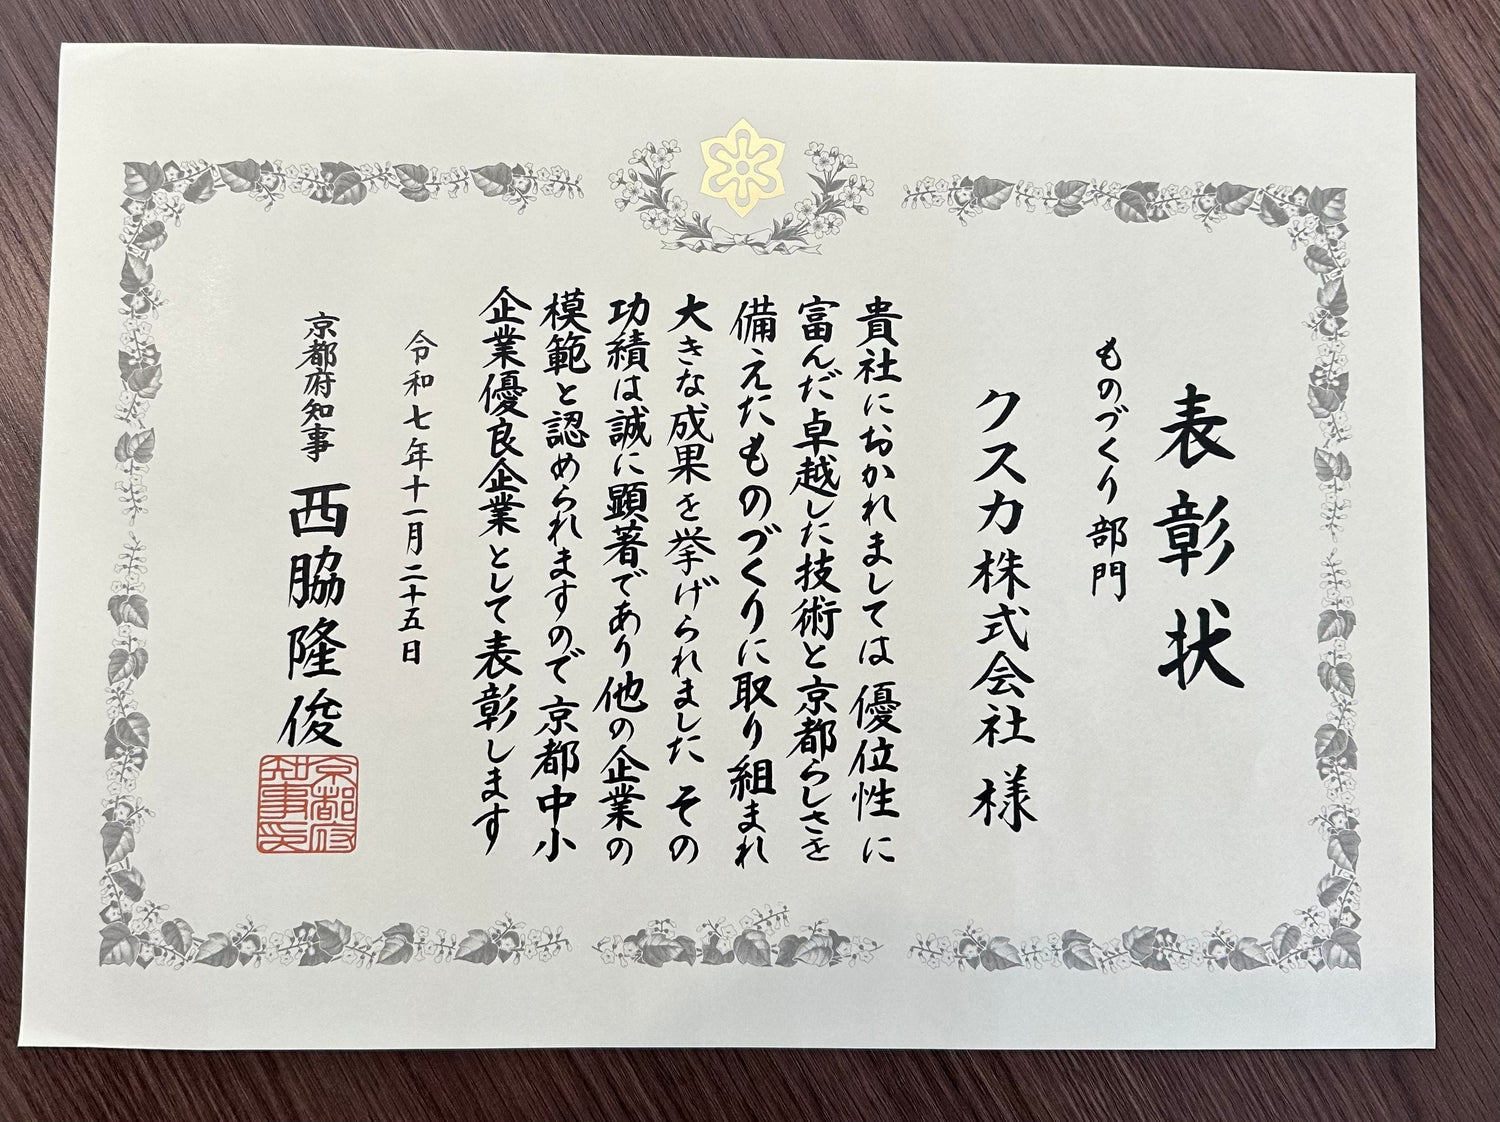 表彰状
ものづくり部門
クスカ株式会社 様
貴社におかれましては優位性に
富んだ卓越した技術と京都らしさを
備えたものづくりに取り組まれ
大きな成果を挙げられました その
功績は誠に顕著であり他の企業の
模範と認められますので京都中小
企業優良企業として表彰します
令和七年十一月二十五日
京都府知事 西脇隆俊
京都府
知事印